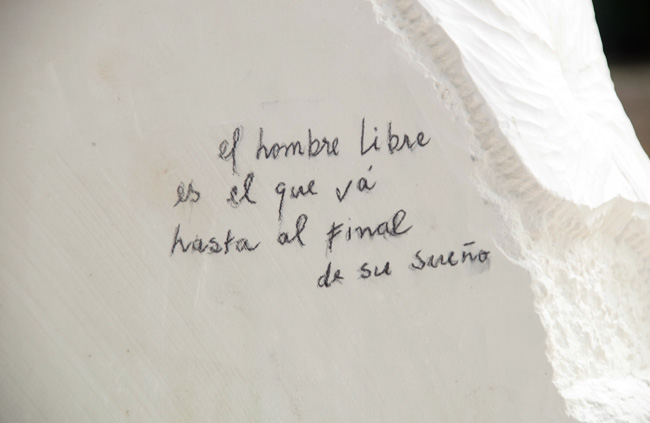 el hombre libre
es el que vá
hasta al final
de su sueño